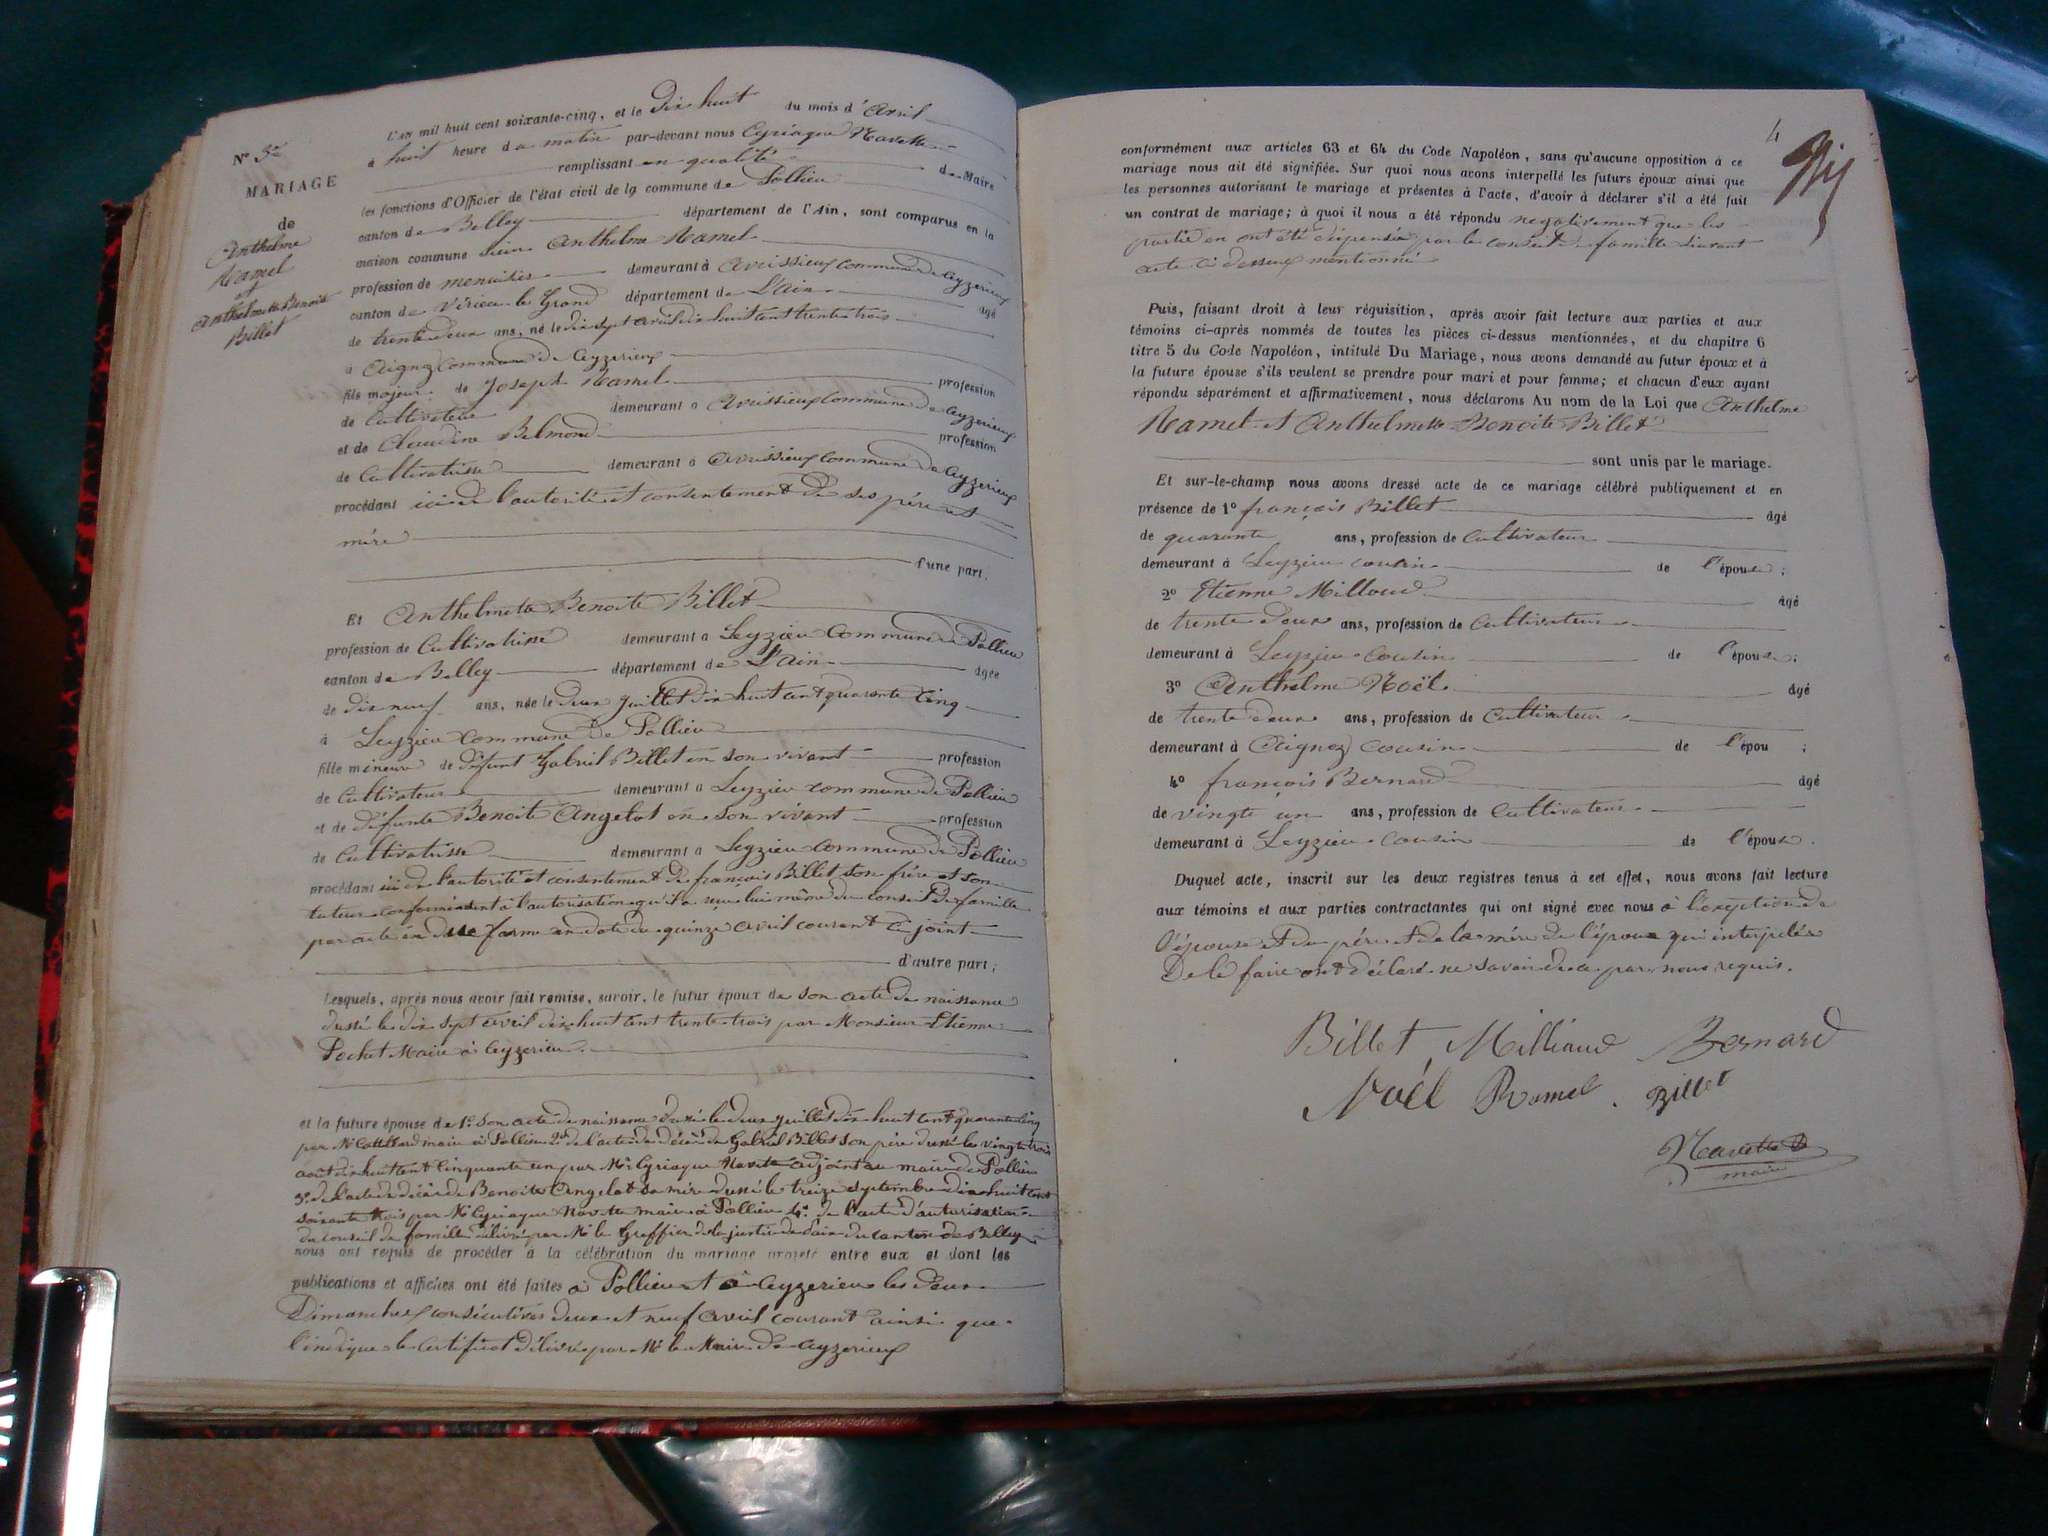 L'an mil huit cent soixante-cinq, et le Dix huit du mois d' Avril
à huit heure du matin par-devant nous Cyriaque Navette
remplissant en qualité de Maire
les fonctions d'Officier de l'état civil de la commune de Pollieu
canton de Belley département de l'Ain, sont comparus en la
maison commune sieur Anthelme Ramel
profession de menuisier demeurant à Avrissieux commune de Ceyzerieux
canton de Virieu le Grand département de L'ain âgé
de trente deux ans, né le dix sept avril dix huit cent trente trois
à Aignoz commune de Ceyzerieux
fils majeur de Joseph Ramel profession
de Cultivateur demeurant à Avrissieux commune de Ceyzerieux
et de Claudine Belmond profession
de Cultivatrisse demeurant à Avrissieux commune de Ceyzerieux
procédant ici de l'autorité et consentement de ses père et
mère
d'une part.
Et Anthelmette Benoite Billet
profession de Cultivatrisse demeurant à Leyzieu commune de Pollieu
canton de Belley département de L'ain âgée
de dix neuf ans, née le deux juillet dix huit cent quarante cinq
à Leyzieu commune de Pollieu
fille mineure de défunt Gabriel Billet en son vivant profession
de Cultivateur demeurant à Leyzieu commune de Pollieu
et de défunte Benoite Angelot en son vivant profession
de Cultivatrisse demeurant à Leyzieu commune de Pollieu
procédant ici de l'autorité et consentement de françois Billet son frère et son
tuteur conformément à l'autorisation qu'il a reçue lui même du conseil de famille
par acte en due forme en date du quinze avril courant ci joint
d'autre part;
Lesquels, après nous avoir fait remise, savoir, le futur époux de son acte de naissance
dressé le dix sept avril dix huit cent trente trois par Monsieur Etienne
Pochet Maire à Ceyzerieu.
et la future épouse de 1º son acte de naissance dressé le deux juillet dix huit cent quarante cinq
par Mr maire à Pollieu 2º de l'acte de décès de Gabriel Billet son père dressé le vingt trois
août dix huit cent cinquante un par Mr Cyriaque Navette adjoint au maire de Pollieu
3º de l'acte de décès de Benoite Angelot sa mère dressé le treize septembre dix huit cent
soixante trois par Mr Cyriaque Navette maire à Pollieu 4º de l'acte d'autorisation
du conseil de famille délivré par Mr le Greffier de la justice de paix du canton de Belley
nous ont requis de procéder à la célébration du mariage projeté entre eux et dont les
publications et affiches ont été faites à Pollieu et à Ceyzerieu les deux
Dimanches consécutives deux et neuf avril courant ainsi que
l'indique le certificat délivré par Mr le Maire de Ceyzerieux
Nº 3
MARIAGE
de
Anthelme
Ramel
et
Anthelmette Benoite
Billet
4
conformément aux articles 63 et 64 du Code Napoléon, sans qu'aucune opposition à ce
mariage nous ait été signifiée. Sur quoi nous avons interpellé les futurs époux ainsi que
les personnes autorisant le mariage et présentes à l'acte, d'avoir à déclarer s'il a été fait
un contrat de mariage; à quoi il nous a été répondu negativement que les
partie en ont été dispensée par le conseil de famille suivant
acte ci dessus mentionné
Puis, faisant droit à leur réquisition, après avoir fait lecture aux parties et aux
témoins ci-après nommés de toutes les pièces ci-dessus mentionnées, et du chapitre 6
titre 5 du Code Napoléon, intitulé Du Mariage, nous avons demandé au futur époux et à
la future épouse s'ils veulent se prendre pour mari et pour femme; et chacun d'eux ayant
répondu séparément et affirmativement, nous déclarons Au nom de la Loi que Anthelme
Ramel et Anthelmette Benoite Billet
sont unis par le mariage.
Et sur-le-champ nous avons dressé acte de ce mariage célébré publiquement et en
présence de 1º françois Billet âgé
de quarante ans, profession de Cultivateur
demeurant à Leyzieu cousin de l'épouse;
2º Etienne Milloud âgé
de trente deux ans, profession de Cultivateur
demeurant à Leyzieu cousin de l'épouse;
3º Anthelme Noël âgé
de trente deux ans, profession de Cultivateur
demeurant à Aignoz cousin de l'épou ;
4º françois Bernard âgé
de vingt un ans, profession de Cultivateur
demeurant à Leyzieu cousin de l'épouse.
Duquel acte, inscrit sur les deux registres tenus à cet effet, nous avons fait lecture
aux témoins et aux parties contractantes qui ont signé avec nous à l'exeption de
l'épouse et du père et de la mère de l'époux qui interpelés
De le faire ont déclaré ne savoir de ce par nous requis.
Billet Milliaud Bernard
Noël Ramel Billet
Navette
maire